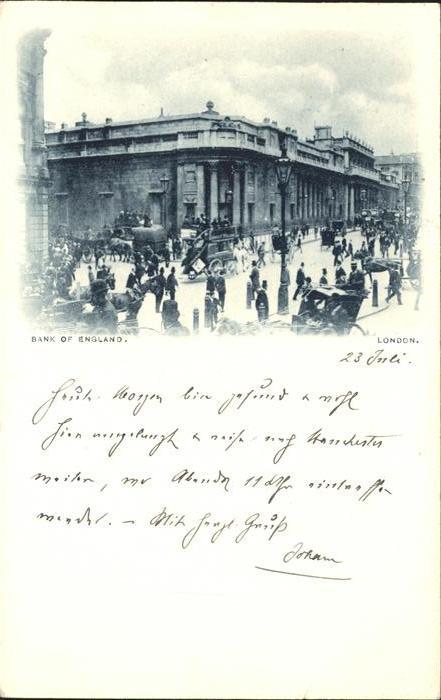 BANK OF ENGLAND.
LONDON.
23 Juli.
Heute Morgen bin gesund & wohl
hier angelangt & reise nach Manchester
weiter, wo Abends 11 Uhr eintreffen
werde. – Mit herzl. Gruß
Johann